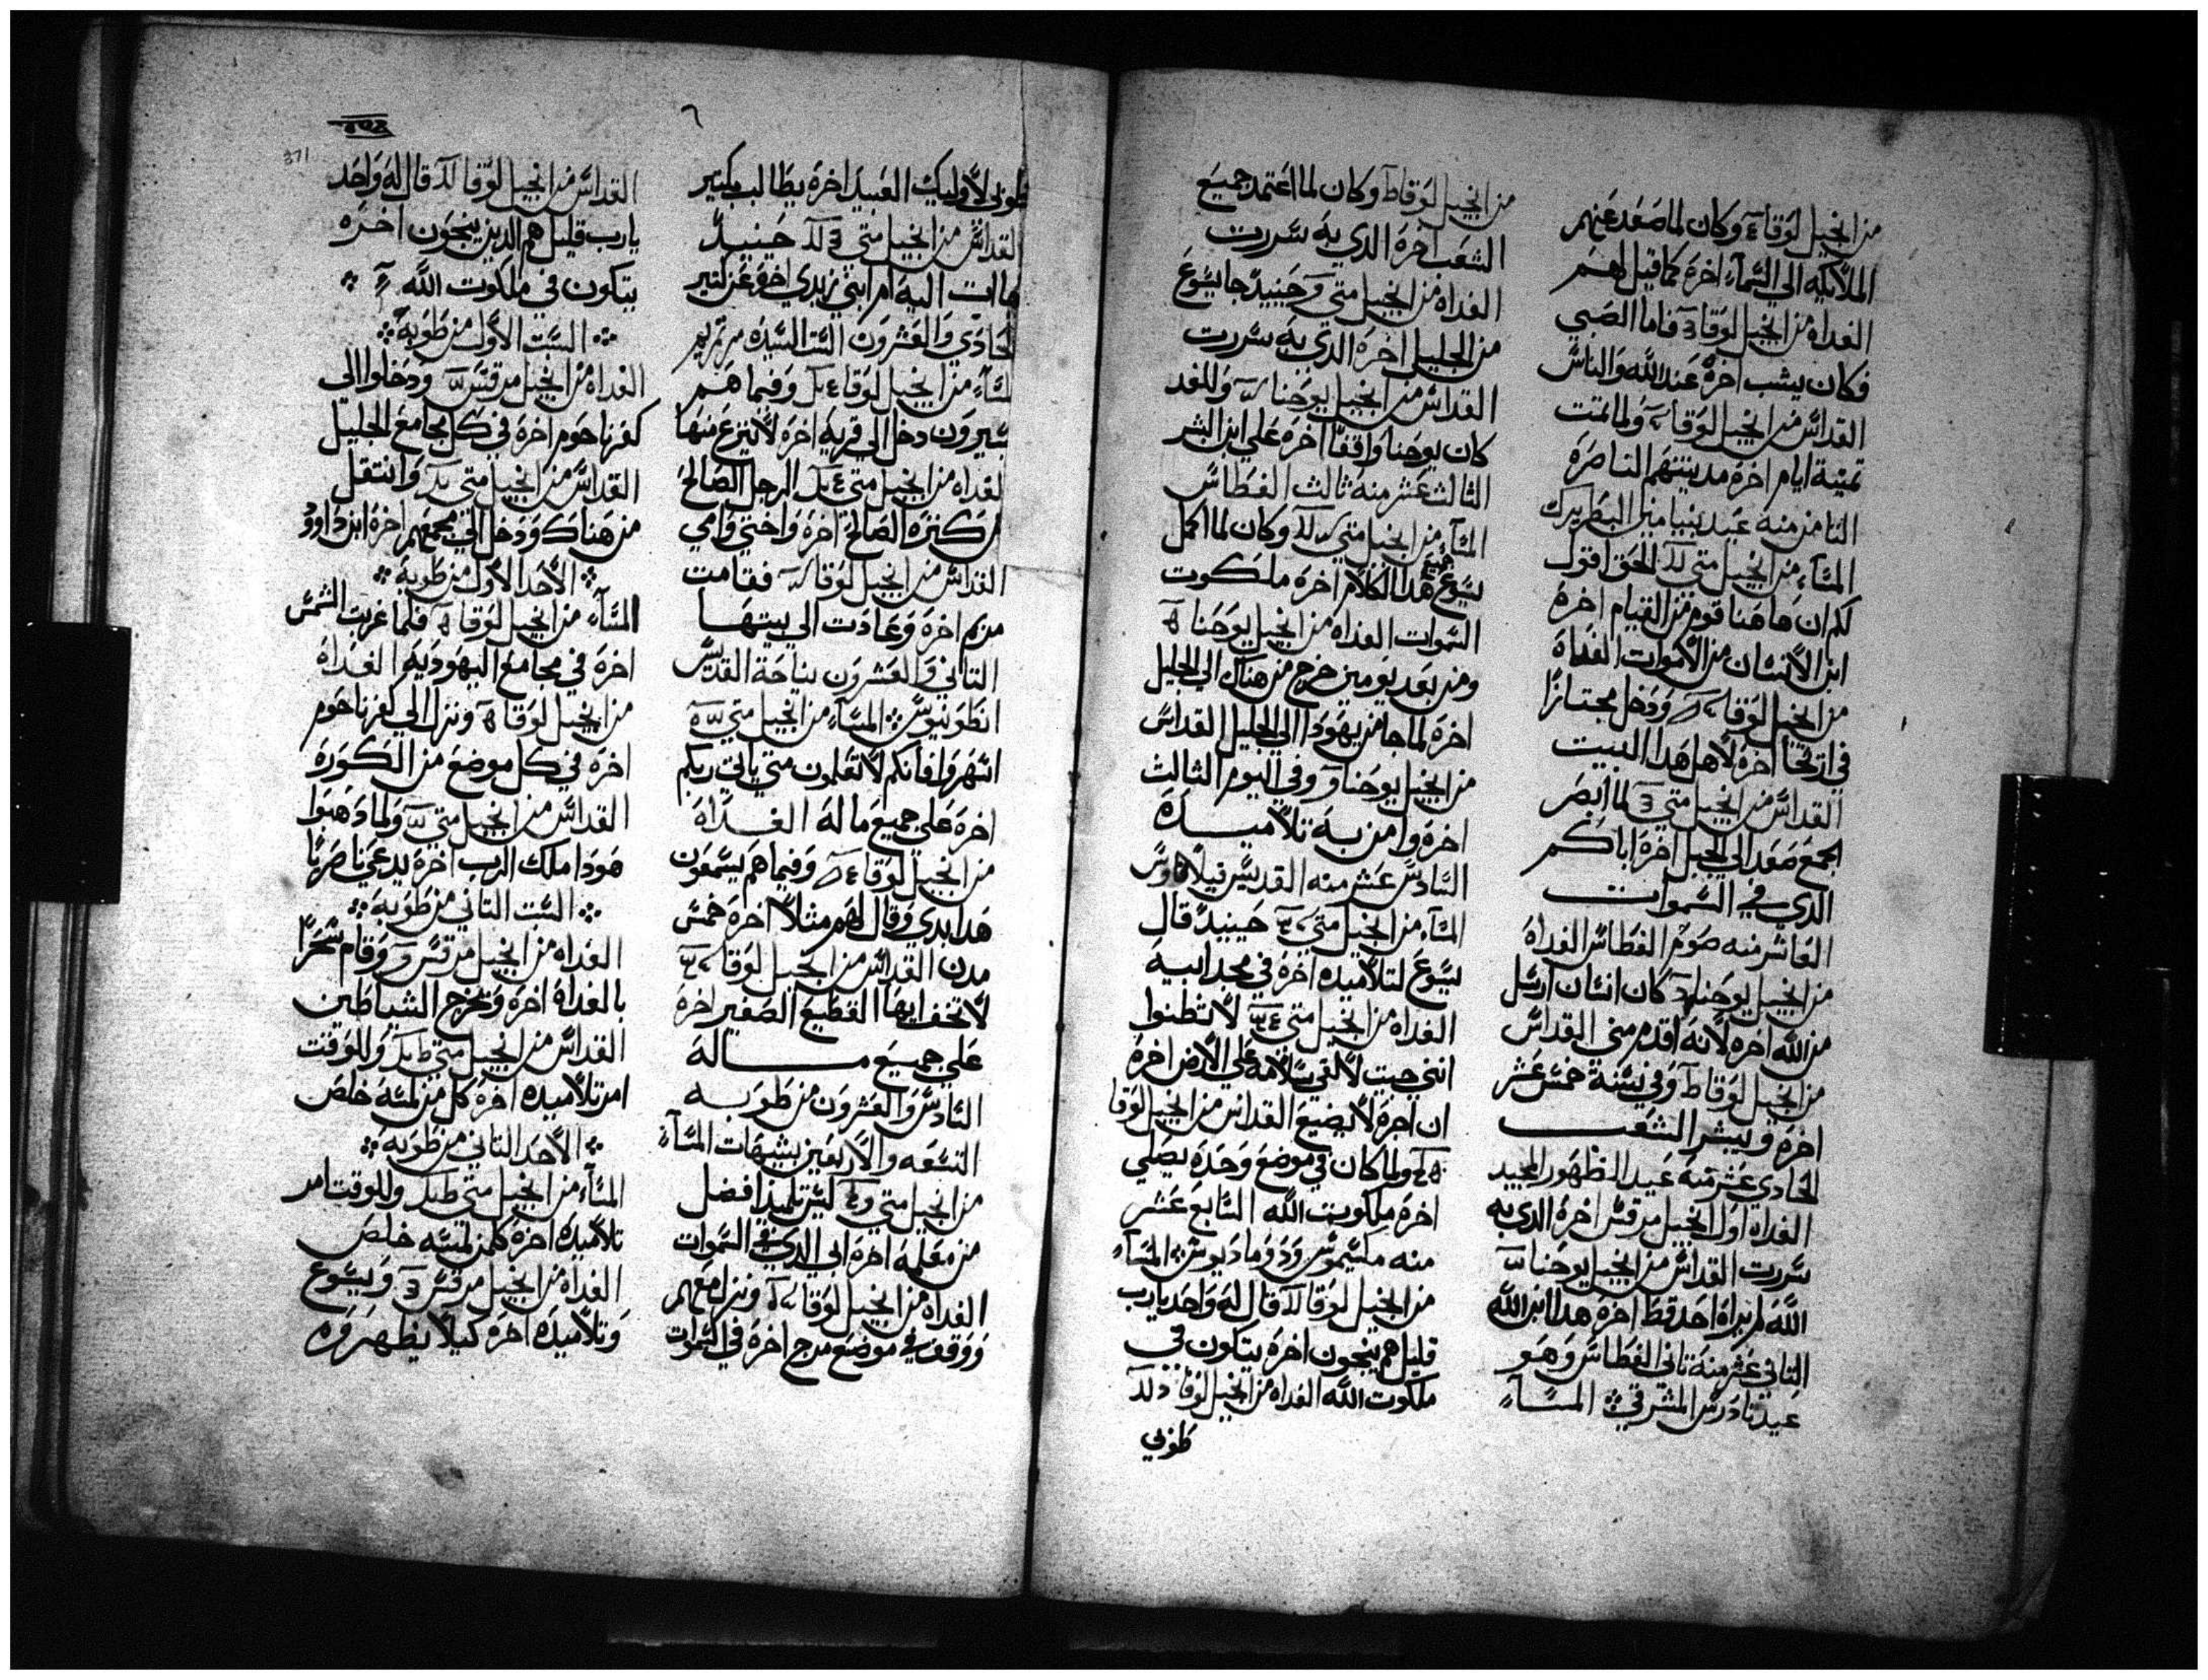 من انجيل لوقا وكان لما صعد عنهم
الملايكه الي السماء اخره كما قيل لهم
الغداه من انجيل لوقا فاما الصبي
فكان يشب اخره عند الله والناس
القداس من انجيل لوقا ولما تمت
ثمنية ايام اخره مدينتهم الناصره
الثامن منه عيد بنيامين البطريرك
المساء من انجيل متي الحق اقول
لكم ان هاهنا قوم من القيام اخره
ابن الانسان من الاموات الغداة
من انجيل لوقا ودخل مجتازا
في اريحا اخره لاهل هدا البيت
القداس من انجيل متي لما ابصر
الجمع صعد الي الجبل اخره اباكم
الدي في السموات
العاشر منه صوم الغطاس الغداه
من انجيل يوحنا كان انسان ارسل
من الله اخره لانه اقدم مني القداس
من انجيل لوقا وفي سنة خمس عشر
اخره ويبشر الشعب
الحادي عشر منه عيد الظهور المجيد
الغداه اول انجيل مرقس اخره الدي به
سررت القداس من انجيل يوحنا
الله لم يراه احد قط اخره هدا ابن الله
الثاني عشر منه ثاني الغطاس وهو
عيد تادرس المشرقي المساء
من انجيل لوقا وكان لما اعتمد جميع
الشعب اخره الدي به سررت
الغداه من انجيل متي حينيد جا يسوع
من الجليل اخره الدي به سررت
القداس من انجيل يوحنا وللغد
كان يوحنا واقفا اخره علي ابن البشر
الثالث عشر منه ثالث الغطاس
المساء من انجيل متي وكان لما اكمل
يسوع جميع هدا الكلام اخره ملكوت
السموات الغداه من انجيل يوحنا
ومن بعد يومين خرج من هناك الي الجليل
اخره لما جا من يهودا الي الجليل القداس
من انجيل يوحنا وفي اليوم الثالث
اخره وامن به تلاميده
السادس عشر منه القديس فيلاتاوس
المساء من انجيل متي حينيد قال
يسوع لتلاميده اخره في مجد ابيه
الغداه من انجيل متي لا تظنوا
انني جيت لالقي سلامه علي الارض اخره
ان اجره لا يضيع القداس من انجيل لوقا
ولما كان في موضع وحده يصلي
اخره ملكوت الله السابع عشر
منه مكسيموس ودوماديوس المساء
من انجيل لوقا قال له واحد يارب
قليل هم ينجون اخره يتكون في
ملكوت الله الغداه من انجيل لوقا
طوبي
طوبي لاوليك العبيد اخره يطالب بكتير
القداس من انجيل متي حينيد
جاات اليه ام ابني زبدي اخره عن كتير
الحادي والعشرون الست السيده مرتمريم
المساء من انجيل لوقا وفيما هم
يسيرون دخل الي قريه اخره لا ينزع منها
الغداه من انجيل متي الرجل الصالح
من كنزه الصالح اخره واختي وامي
القداس من انجيل لوقا فقامت
مريم اخره وعادت الي بيتها
الثاني والعشرون نياحة القديس
انطونيوس المساء من انجيل متي
اسهروا فانكم لا تعلمون متي ياتي ربكم
اخره علي جميع ماله الغداه
من انجيل لوقا وفيما هم يسمعون
هدا بدي وقال لهم مثلا اخره خمس
مدن القداس من انجيل لوقا
لا تخف ايها القطيع الصغير اخره
علي جميع ماله
السادس والعشرون من طوبه
التسعه والاربعين بشيهات المساء
من انجيل متي ليس تلميذ افضل
من معلمه اخره ابي الدي في السموات
الغداه من انجيل لوقا ونزل معهم
ووقف في موضع مرج اخره في السموات
القداس من انجيل لوقا قال له واحد
يارب قليل هم الدين ينجون اخره
يتكون في ملكوت الله
السبت الاول من طوبه
الغداه من انجيل مرقس ودخلوا الي
كفرناحوم اخره في كل مجامع الجليل
القداس من انجيل متي وانتقل
من هناك ودخل الي مجمعهم اخره ابن داوود
الاحد الاول من طوبه
المساء من انجيل لوقا فلما غربت الشمس
اخره في مجامع اليهوديه الغداة
من انجيل لوقا ونزل الي كفرناحوم
اخره في كل موضع من الكوره
القداس من انجيل متي ولما دهبوا
هودا ملاك الرب اخره يدعي ناصريا
السبت الثاني من طوبه
الغداه من انجيل مرقس وقام سحرا
بالغداة اخره ويخرج الشياطين
القداس من انجيل متي وللوقت
امر تلاميده اخره كل من لمسه خلص
الاحد الثاني من طوبه
المساء من انجيل متي وللوقت امر
تلاميده اخره كلمن لمسه خلص
الغداه من انجيل مرقس ويسوع
وتلاميده اخره كيلا يظهروه